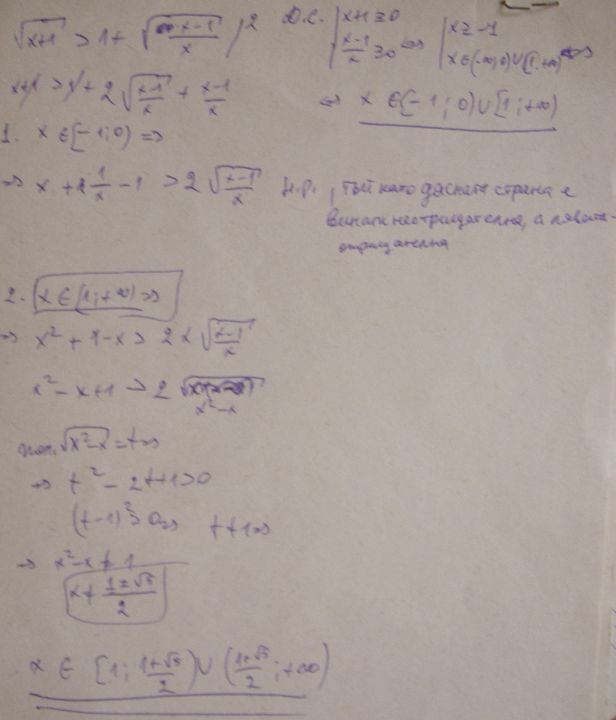 √(x+1) > 1 + √((x-1)/x) |²
Д.С. | x+1 ≥ 0
(x-1)/x ≥ 0 ⇔ | x ≥ -1
x ∈ (-∞; 0) ∪ [1; +∞) ⇔
⇔ x ∈ [-1; 0) ∪ [1; +∞)
x+1 > 1 + 2√((x-1)/x) + (x-1)/x
1. x ∈ [-1; 0) ⇒
⇒ x + 1/x - 1 > 2√((x-1)/x)
Н.Р., тъй като дясната страна е
винаги неотрицателна, а лявата -
отрицателна
2. x ∈ [1; +∞) ⇒
⇒ x² + 1 - x > 2x√((x-1)/x)
x² - x + 1 > 2√
x² - x
пол. √(x² - x) = t ⇒
⇒ t² - 2t + 1 > 0
(t-1)² > 0 ⇒ t ≠ 1 ⇒
⇒ x² - x ≠ 1
x ≠ (1 ± √5)/2
x ∈ [1; (1+√5)/2) ∪ ((1+√5)/2; +∞)